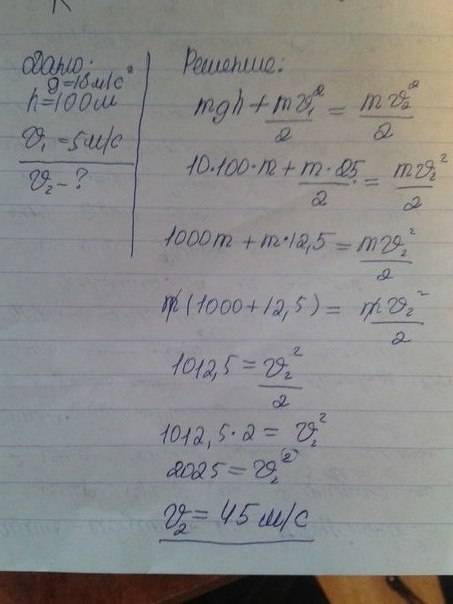 Дано:
g=10м/с²
h=100м
υ₁=5м/с
υ₂-?
Решение:
mgh + mυ₁²/2 = mυ₂²/2
10·100·m + m·25/2 = mυ₂²/2
1000m + m·12,5 = mυ₂²/2
m(1000+12,5) = mυ₂²/2
1012,5 = υ₂²/2
1012,5·2 = υ₂²
2025 = υ₂²
υ₂ = 45 м/с